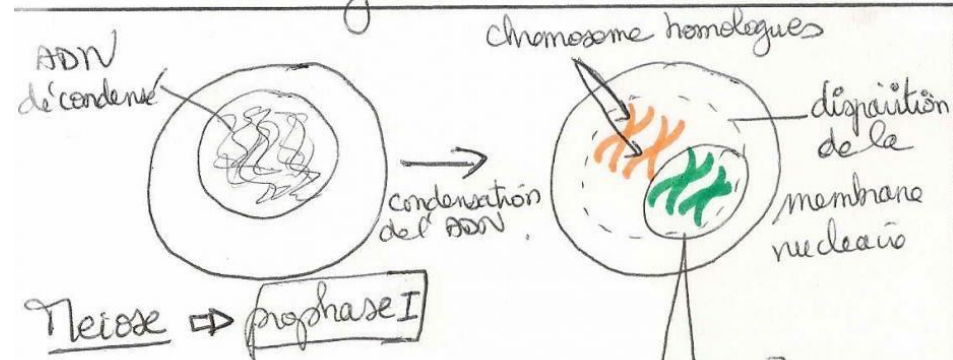 ADN
décondensé
condensation
de l'ADN.
chromosome homologues
disparition
de la
membrane
nucleaire
Meiose ⇨ prophase I